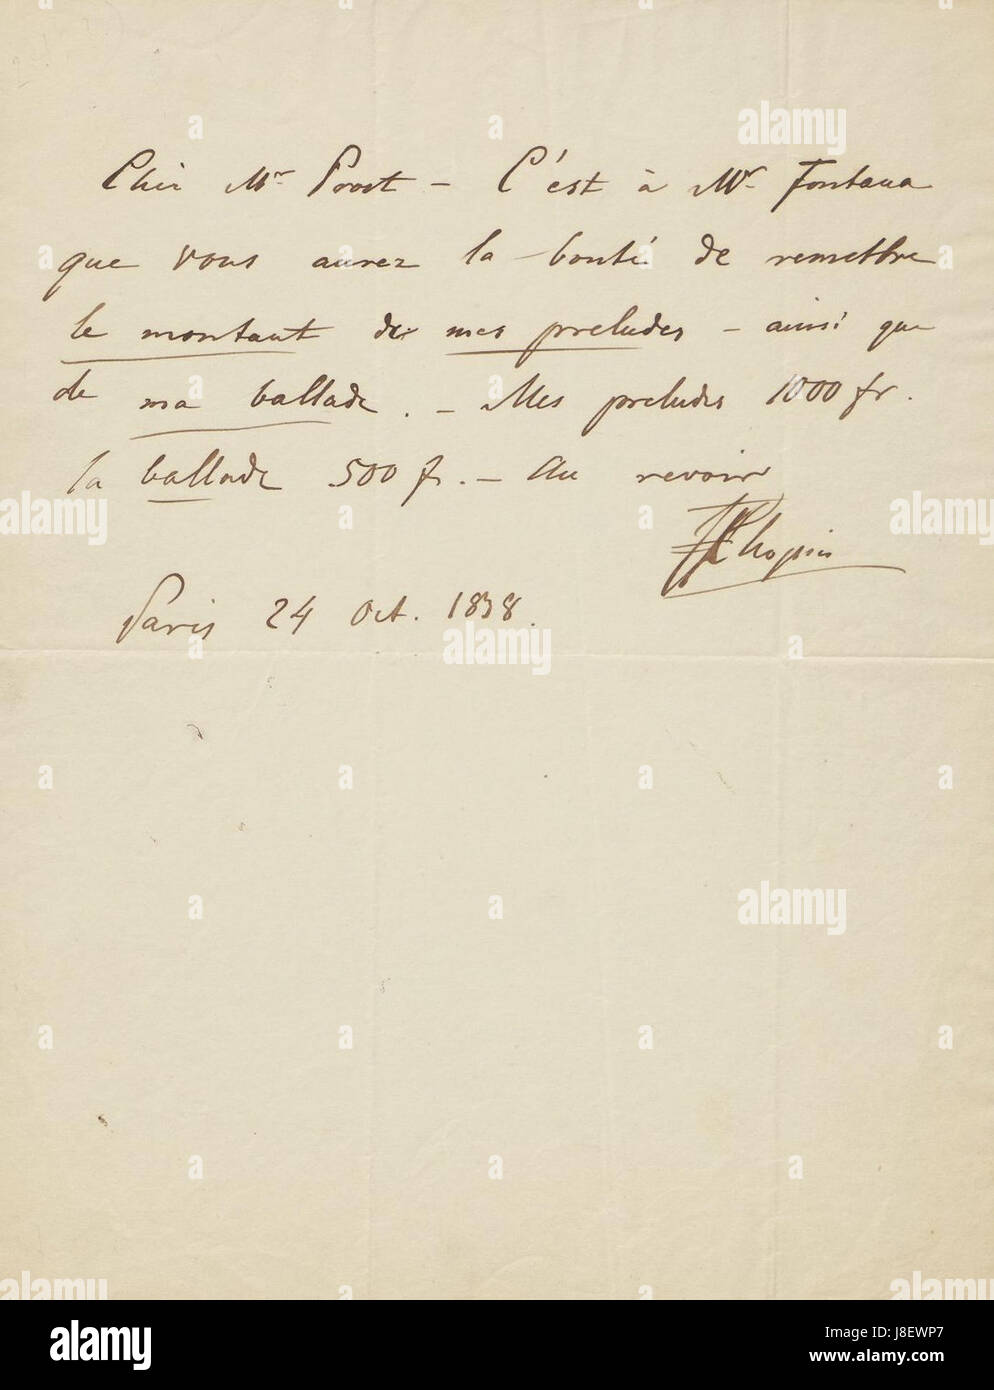 Cher Mr Provt – C'est à Mr Fontana
que vous aurez la bonté de remettre
le montant de mes preludes – ainsi que
de ma ballade. – Mes preludes 1000 fr.
la ballade 500 fr. – Au revoir
FChopin
Paris 24 Oct. 1838.
a alamy
alamy
www.alamy.com
Image ID: J8EWP7